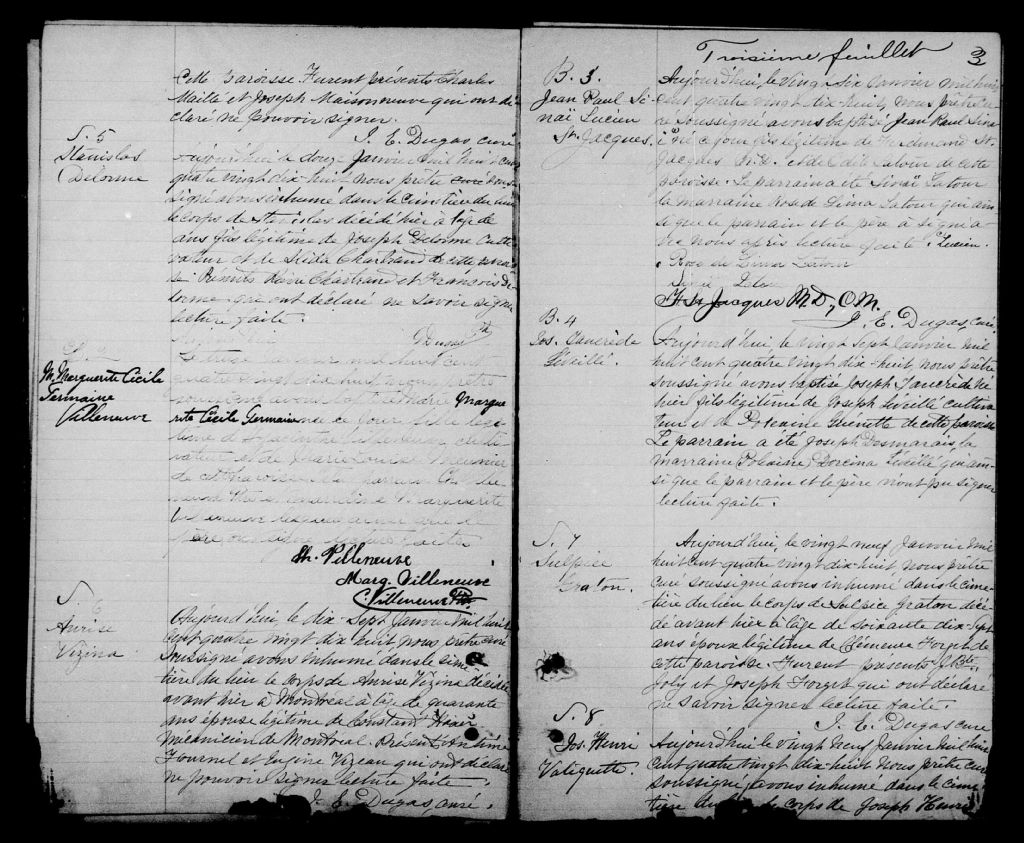 cette paroisse. Furent présents Charles
Maillé et Joseph Maisonneuve qui ont dé-
claré ne pouvoir signer.
J. E. Dugas, curé
S. 5
Stanislas
Delorme
Aujourd'hui le douze Janvier mil huit cent
quatre vingt dix-huit nous prêtre curé sous-
signé avons inhumé dans le cimetière du lieu
le corps de Stanislas décédé hier à l'âge de
ans fils légitime de Joseph Delorme culti-
vateur et de Charbrand de cette parois-
se. Présents Charbrand et François De-
lorme qui ont déclaré ne savoir signer
lecture faite.
Dugas Ptre
M. Marguerite Cécile
Germaine
Villeneuve
Le treize mil huit cent
quatre vingt dix huit nous prêtre
soussigné avons baptisé Marie Margue-
rite Cécile Germaine née ce jour fille légi-
time d' Villeneuve culti-
vateur et de Marie Louise
de cette paroisse. Le parrain
Marguerite
Villeneuve
père, ont signé lecture faite
Th. Villeneuve
Marg. Villeneuve
C. Villeneuve Ptre.
S. 6
Anrise
Vizina
Aujourd'hui le dix-sept Janvier mil huit
cent quatre vingt dix huit nous prêtre curé
soussigné avons inhumé dans le cime-
tière du lieu le corps de Anrise Vizina décédée
avant hier à Montréal à l'âge de quarante
ans épouse légitime de Constant
mécanicien de Montréal. Présents Anthime
Fournel et Eugène Vizeau qui ont déclaré
ne pouvoir signer lecture faite.
J. E. Dugas, curé.
Troisième feuillet
3
B. 3.
Jean Paul Si-
naï Lucien
St. Jacques.
Aujourd'hui, le vingt six Janvier mil huit
cent quatre vingt dix-huit, nous prêtre cu-
ré soussigné avons baptisé Jean Paul Sinaï
né ce jour fils légitime de St.
Jacques M.D. et de Latour de cette
paroisse. Le parrain a été Sinaï Latour
la marraine Rose de Lima Latour qui ain-
si que le parrain et le père a signé a-
vec nous après lecture faite. Lucien.
Rose de Lima Latour
Sinaï Latour
St Jacques M.D., C.M.
J. E. Dugas, curé.
B. 4
Jos. Tancrède
Léveillé.
Aujourd'hui, le vingt sept Janvier mil
huit cent quatre vingt dix-huit, nous prêtre
soussigné avons baptisé Joseph Tancrède né
hier fils légitime de Joseph Léveillé cultiva-
teur et de Guenette de cette paroisse
Le parrain a été Joseph Desmarais, la
marraine Dorcina Léveillé qui ain-
si que le parrain et le père n'ont pu signer
lecture faite.
S. 7
Sulpice
Graton.
Aujourd'hui, le vingt neuf Janvier mil
huit cent quatre vingt dix-huit nous prêtre
curé soussigné avons inhumé dans le cime-
tière du lieu le corps de Sulpice Graton décé-
dé avant hier à l'âge de soixante dix-sept
ans époux légitime de Clémence Forget de
cette paroisse. Furent présents J. Bte
Joly et Joseph Forget qui ont déclaré
ne savoir signer lecture faite.
J. E. Dugas curé
S. 8
Jos. Henri
Valiquette.
Aujourd'hui, le vingt neuf Janvier mil huit
cent quatre vingt dix-huit, nous prêtre curé
soussigné, avons inhumé dans le cime-
tière du lieu le corps de Joseph Henri